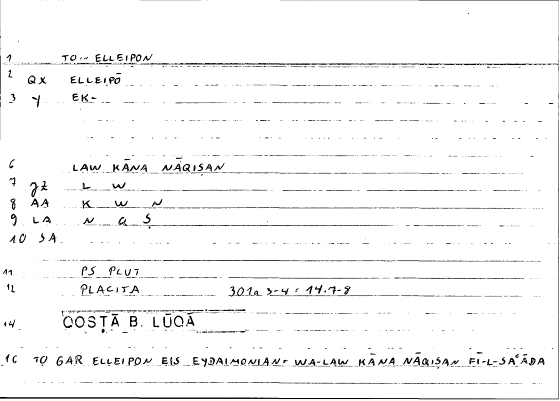 1 TO-- ELLEIPON
2 QX ELLEIPŌ
3 y EK-
6 LAW KĀNA NĀQIṢAN
7 L W
8 AA K W N
9 LA N Q Ṣ
10 SA
11 PS PLUT
12 PLACITA 301a 3-4 = 14.7-8
14 QOSṬĀ B. LŪQĀ
16 TO GAR ELLEIPON EIS EYDAIMONIAN= WA-LAW KĀNA NĀQIṢAN FĪ-L-SAʿĀDA